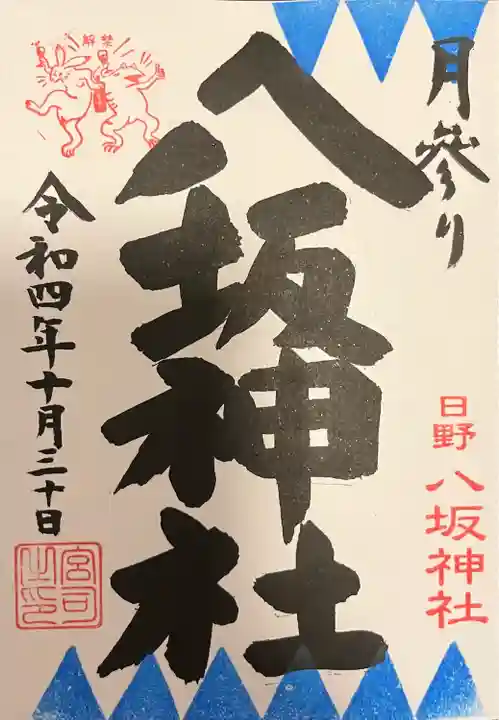 月参り
日野八坂神社
八坂神社
解禁
令和四年十月三十日
宮司之印